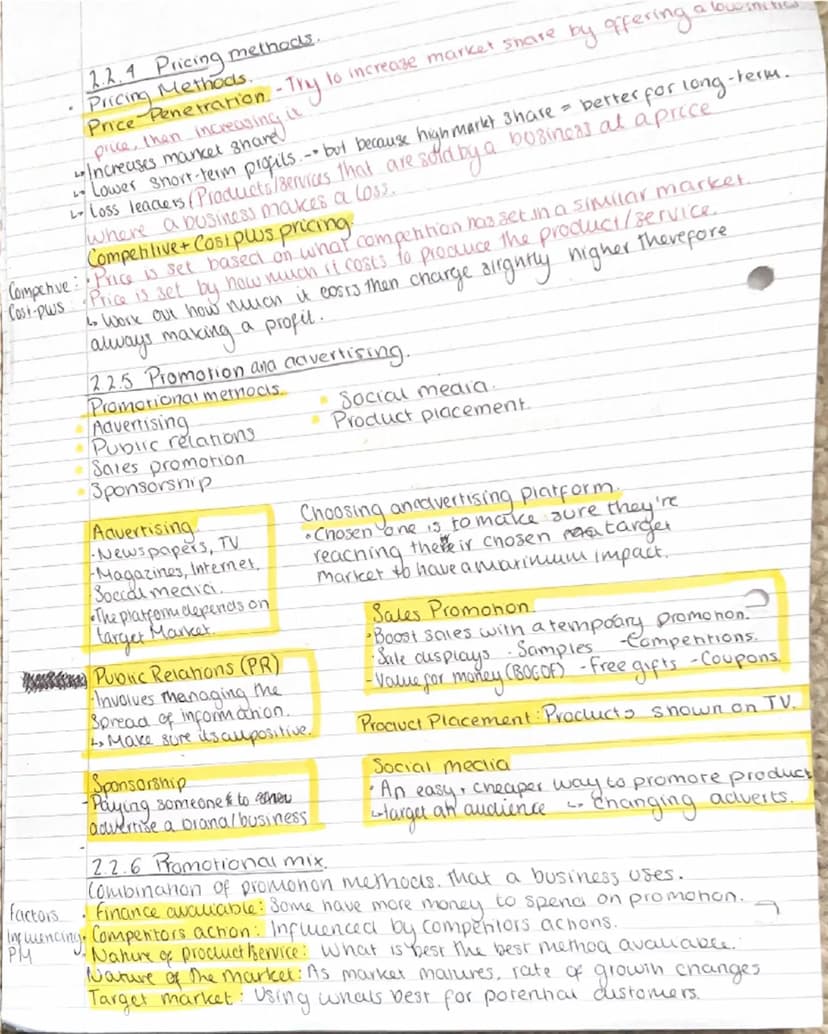 2.2.4 Pricing methods.
• Pricing Methods.
Price Penetration - Try to increase market share by offering a low initial
price, then increasing it
↳ Increases market share
↳ Lower short-term profits --• but because high markt share = better for long-term.
↳ Loss leaders (Products/services that are sold by a business at a price
where a business makes a loss.
Competitive + Cost plus pricing.
Competive: • Price is set based on what competition has set in a similar market.
Cost-plus • Price is set by how much it costs to produce the product/service.
↳ Work out how much it costs then charge slightly higher therefore
always making a profit.
2.2.5 Promotion and advertising.
Promotional methods.
• Advertising
• Public relations
• Sales promotion
• Sponsorship
• Social media.
• Product placement.
Advertising
- Newspapers, TV
- Magazines, Internet,
Social media.
• The platform depends on
target Market.
Choosing an advertising platform.
• Chosen one is to make sure they're
reaching their chosen target
market to have a maximum impact.
Sales Promotion.
• Boost sales with a tempoary promotion.
• Sale displays - Samples - Competitions.
- Value for money (BOGOF) - Free gifts - Coupons
Public Relations (PR)
- Involves managing the
spread of information.
↳ Make sure its all positive.
Product Placement: Products shown on TV.
Sponsorship
- Paying someone to
advertise a brand/business
Social media
• An easy + cheaper way to promote product
↳ target an audience ↳ changing adverts.
2.2.6 Promotional mix.
Combination of promotion methods. that a business uses.
Factors influencing PM
• Finance available: Some have more money to spend on promotion.
• Competitors action: Influenced by competitors actions.
• Nature of product/service: What is best the best method available.
Nature of the market: As market matures, rate of growth changes
Target market: Using whats best for potential customers.